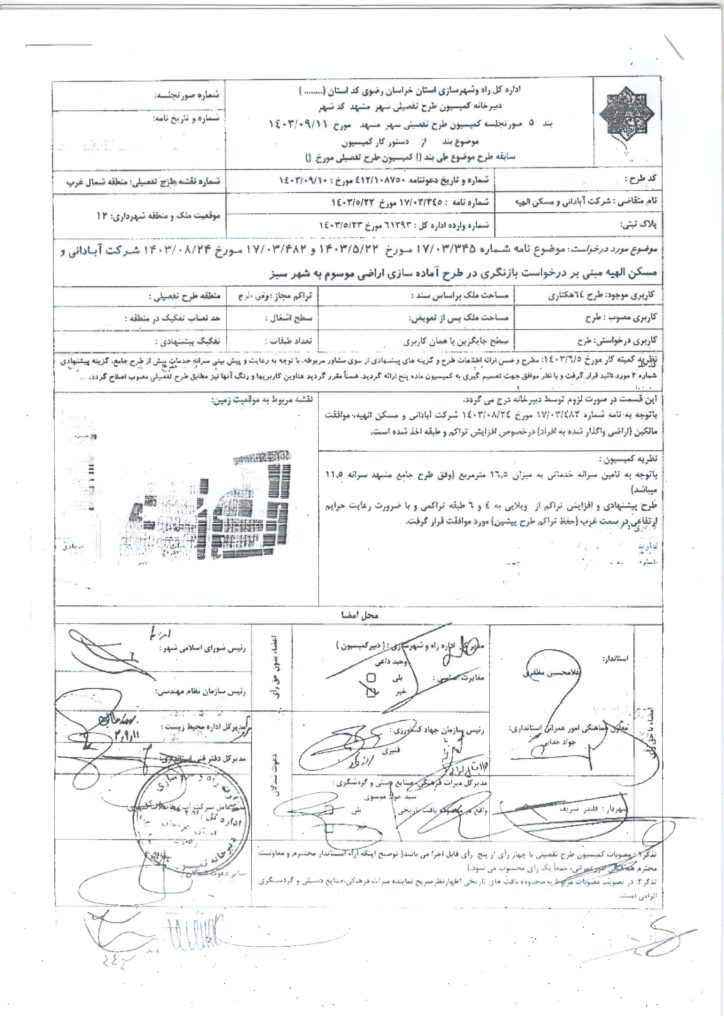 اداره کل راه وشهرسازی استان خراسان رضوی کد استان (........)
دبیرخانه کمیسیون طرح تفصیلی شهر مشهد کد شهر
بند ۵ صورتجلسه کمیسیون طرح تفصیلی شهر مشهد مورخ ۱۴۰۳/۰۹/۱۱
موضوع بند از دستور کار کمیسیون
سابقه طرح موضوع طی بند () کمیسیون طرح تفصیلی مورخ ()
شماره صورتجلسه:
شماره و تاریخ نامه:
کد طرح:
شماره و تاریخ دعوتنامه ۴۱۲/۱۰۸۷۵۰ مورخ: ۱۴۰۳/۰۹/۱۰
شماره نقشه طرح تفصیلی: منطقه شمال غرب
نام متقاضی: شرکت آبادانی و مسکن الهیه
شماره نامه: ۱۷/۰۳/۳۴۵ مورخ ۱۴۰۳/۵/۲۲
موقعیت ملک و منطقه شهرداری: ۱۲
پلاک ثبتی:
شماره وارده اداره کل: ۶۱۳۹۳ مورخ ۱۴۰۳/۵/۲۳
موضوع مورد درخواست: موضوع نامه شماره ۱۷/۰۳/۳۴۵ مورخ ۱۴۰۳/۵/۲۲ و ۱۷/۰۳/۴۸۲ مورخ ۱۴۰۳/۰۸/۲۴ شرکت آبادانی و
مسکن الهیه مبنی بر درخواست بازنگری در طرح آماده سازی اراضی موسوم به شهر سبز
کاربری موجود: طرح ۶۴هکتاری
مساحت ملک براساس سند:
تراکم مجاز: وفق طرح
منطقه طرح تفصیلی:
کاربری مصوب: طرح
مساحت ملک پس از تعویض:
سطح اشغال:
حد نصاب تفکیک در منطقه:
کاربری درخواستی: طرح
سطح جایگزین با همان کاربری:
تعداد طبقات:
تفکیک پیشنهادی:
نظریه کمیته کار مورخ ۱۴۰۳/۶/۵: مطرح و ضمن ارائه اطلاعات طرح و گزینه های پیشنهادی از سوی مشاور مربوطه، با توجه به رعایت و پیش بینی سرانه خدمات بیش از طرح جامع، گزینه پیشنهادی
شماره ۲ مورد تائید قرار گرفت و با نظر موافق جهت تصمیم گیری به کمیسیون ماده پنج ارائه گردید. ضمناً مقرر گردید عناوین کاربریها و رنگ آنها نیز مطابق طرح تفصیلی مصوب اصلاح گردد.
این قسمت در صورت لزوم توسط دبیرخانه درج می گردد.
باتوجه به نامه شماره ۱۷/۰۳/۴۸۲ مورخ ۱۴۰۳/۰۸/۲۴ شرکت آبادانی و مسکن الهیه، موافقت
مالکین (اراضی واگذار شده به افراد) درخصوص افزایش تراکم و طبقه اخذ شده است.
نقشه مربوط به موقعیت زمین:
نظریه کمیسیون:
باتوجه به تامین سرانه خدماتی به میزان ۱۶,۵ مترمربع (وفق طرح جامع مشهد سرانه ۱۱,۵
میباشد)
طرح پیشنهادی و افزایش تراکم از ویلایی به ۴ و ۶ طبقه تراکمی و با ضرورت رعایت حرایم
ارتفاعی در سمت غرب (حفظ تراکم طرح پیشین) مورد موافقت قرار گرفت.
محل امضا
استاندار:
غلامحسین مظفری
مدیرکل اداره راه و شهرسازی: (دبیرکمیسیون)
وحید داعی
بلی
خیر
اعضاء بدون حق رأی
رئیس شورای اسلامی شهر:
رئیس سازمان نظام مهندسی:
اعضاء با حق رأی
معاون هماهنگی امور عمرانی استانداری:
جواد خدایی
رئیس سازمان جهاد کشاورزی:
قنبری
دعوت شدگان
مدیرکل اداره محیط زیست:
۳,۹,۱۱
مدیرکل دفتر فنی استانداری:
شهردار: قلندر شریف
مدیرکل میراث فرهنگی، صنایع دستی و گردشگری:
سید جواد موسوی
بلی
خیر
سایر دعوت شدگان:
تذکر۱: مصوبات کمیسیون طرح تفصیلی با چهار رأی از پنج رأی قابل اجرا می باشد( توضیح اینکه آراء استاندار محترم و معاونت
محترم هماهنگی امور عمرانی، جمعاً یک رای محسوب می شود.)
تذکر۲: در تصویب مصوبات مربوط به محدوده بافت های تاریخی اظهارنظر صریح نماینده میراث فرهنگی،صنایع دستی و گردشگری
الزامی است.